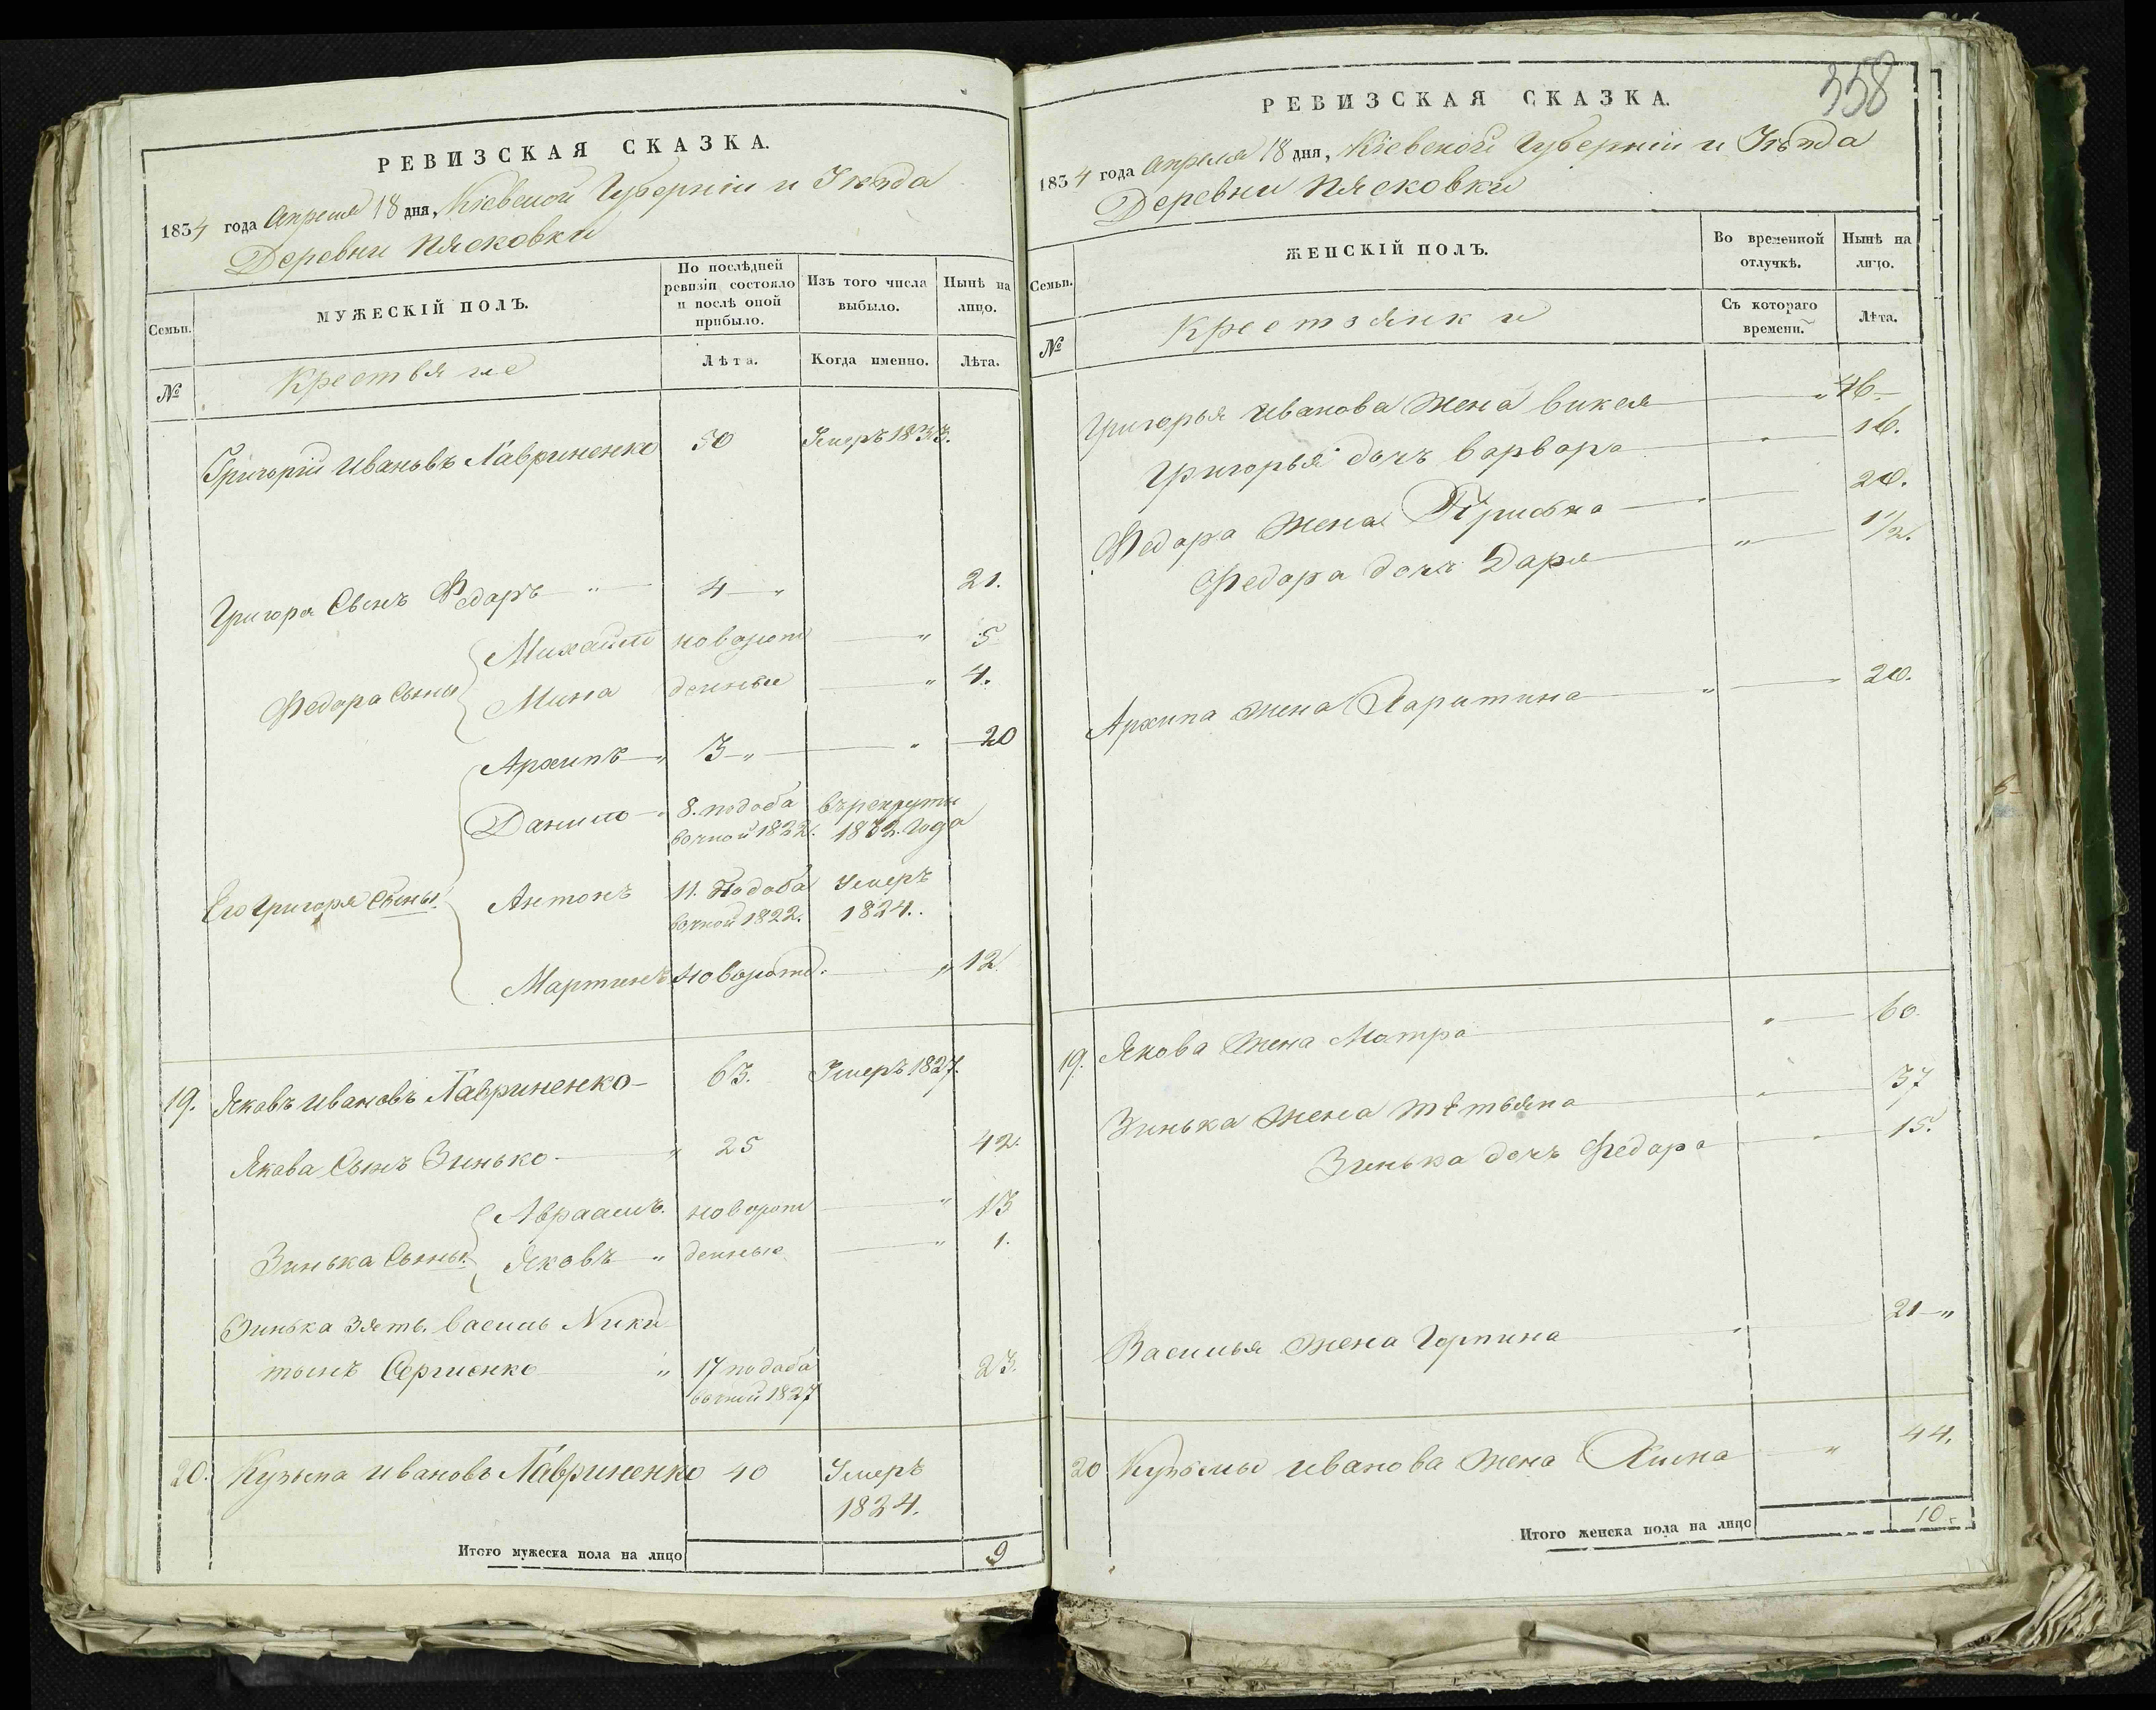 РЕВИЗСКАЯ СКАЗКА.
1834 года Апреля 18 дня, Кіевской Губерніи и Уѣзда
Деревни Пясковки
Семьи.
МУЖЕСКІЙ ПОЛЪ.
По послѣдней ревизіи состояло и послѣ оной прибыло.
Изъ того числа выбыло.
Нынѣ на лицо.
№
Крестьяне
Лѣта.
Когда именно.
Лѣта.
Григорій Ивановъ Лавриненко 50 Умеръ 1833.
Григора Сынъ Федоръ 4 21.
Федора Сыны
Михаило новорот 5
Мина денные 4.
Архипъ 3 20
Данило 8. подоба въ рекруты
вочной 1822. 1832. Года
Его Григоря Сыны
Антонъ 11. Подоба Умеръ
вочной 1822. 1824.
Мартинъ Новорот. 12
19. Яковъ Ивановъ Лавриненко 63. Умеръ 1827.
Якова Сынъ Зинько 25 42.
Зинька Сыны
Авраамъ новорот 13
Яковъ денные 1.
Зинька зять Василь Ники
тынъ Сергиенко 17 подоба 23.
вочной 1827
20. Кузьма Ивановъ Лавриненко 40 Умеръ
1834.
Итого мужеска пола на лицо 9
358
РЕВИЗСКАЯ СКАЗКА.
1834 года Апреля 18 дня, Кіевской Губерніи и Уѣзда
Деревни Пясковки
Семьи.
ЖЕНСКІЙ ПОЛЪ.
Во временной отлучкѣ.
Нынѣ на лицо.
№
Крестьянки
Съ котораго времени.
Лѣта.
Григорья Иванова жена 46.
Григорья дочъ Варвара 16.
Федора жена 20.
Федора дочъ Даря 1 1/2.
Архипа жена Харитина 20.
19. Якова жена Мотра 60.
Зинька жена Тѣтьяна 37
Зинька дочъ Федора 15.
Василья жена Горпина 21
20 Кузьмы Иванова жена 44.
Итого женска пола на лицо 10.